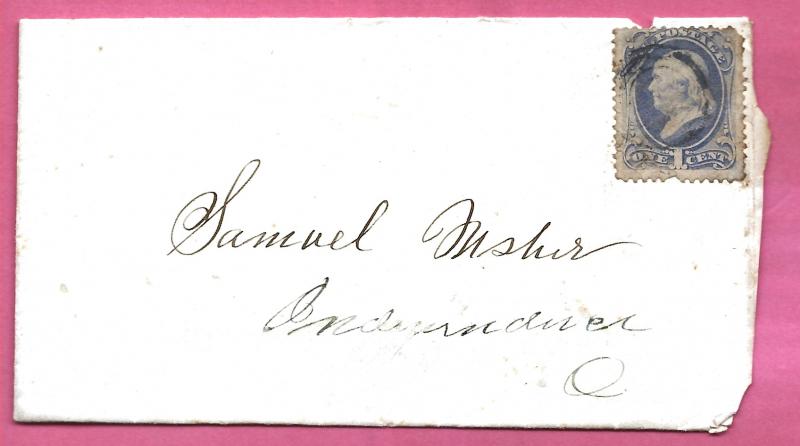 POSTAGE
ONE 1 CENT
Samuel
Independence
O